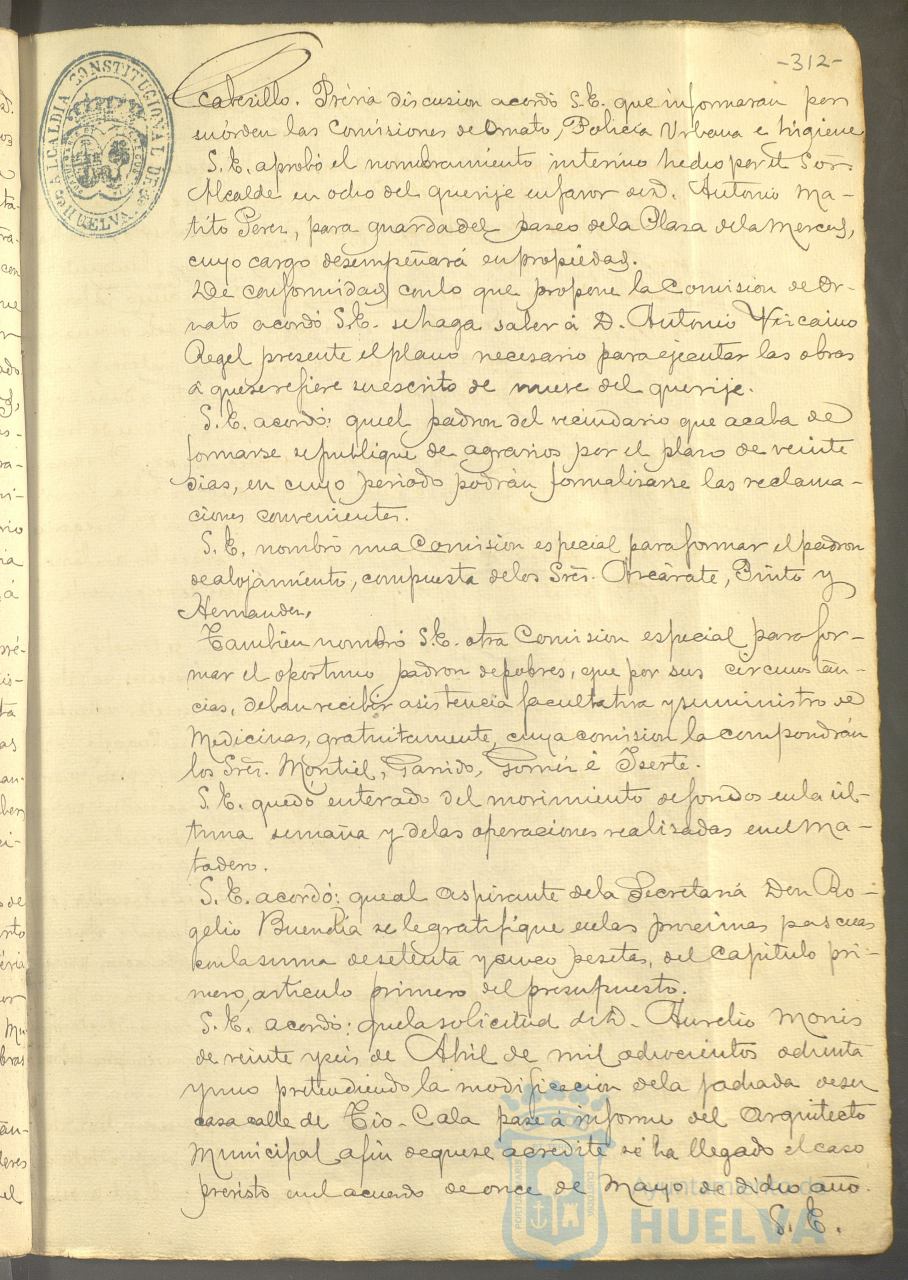 -312-
ALCALDÍA CONSTITUCIONAL DE
HUELVA
cabesillo. Prévia discusion acordó S.E. que informarán por
su órden las Comisiones de Ornato, Policía Urbana e higiene
S.E. aprobó el nombramiento interino hecho por el Sor.
Alcalde en ocho del que rije en favor de D. Antonio Ma-
tito Perez, para guarda del paseo de la Plaza de la Merced,
cuyo cargo desempeñará en propiedad.
De conformidad con lo que propone la Comision de Or-
nato acordó S.E. se haga saber á D. Antonio Vizcaino
Regel presente el plano necesario para ejecutar las obras
a que se refiere su escrito de nueve del que rije.
S.E. acordó: que el padron del vecindario que acaba de
formarse se publique de agrarios por el plazo de veinte
dias, en cuyo periodo podrán formalizarse las reclama-
ciones convenientes.
S.E. nombró una Comision especial para formar el padron
de alojamiento, compuesta de los Sres. Azcárate, Pinto y
Hernandez.
Tambien nombró S.E. otra Comision especial para for-
mar el oportuno padron de pobres, que por sus circunstan-
cias, deban recibir asistencia facultativa y suministro de
Medicinas, gratuitamente, cuya comision la compondrán
los Sres. Montiel, Garrido, é Iserte.
S.E. quedó enterado del movimiento de fondos en la úl-
tima semana y de las operaciones realizadas en el Ma-
tadero.
S.E. acordó: que al aspirante de la Secretaría Don Ro-
gelio Buendía se le gratifique en las proximas pascuas
con la suma de setenta y cinco pesetas, del Capitulo pri-
mero, articulo primero del presupuesto.
S.E. acordó: que la solicitud de D. Aurelio Monis
de veinte y seis de Abril de mil ochocientos ochenta
y uno pretendiendo la modificacion de la fachada de su
casa calle de Tio-Cala pase á informe del Arquitecto
Municipal a fin de que se acredite si ha llegado el caso
previsto en el acuerdo de once de Mayo de dicho año.
S.E.
Ayuntamiento de
HUELVA